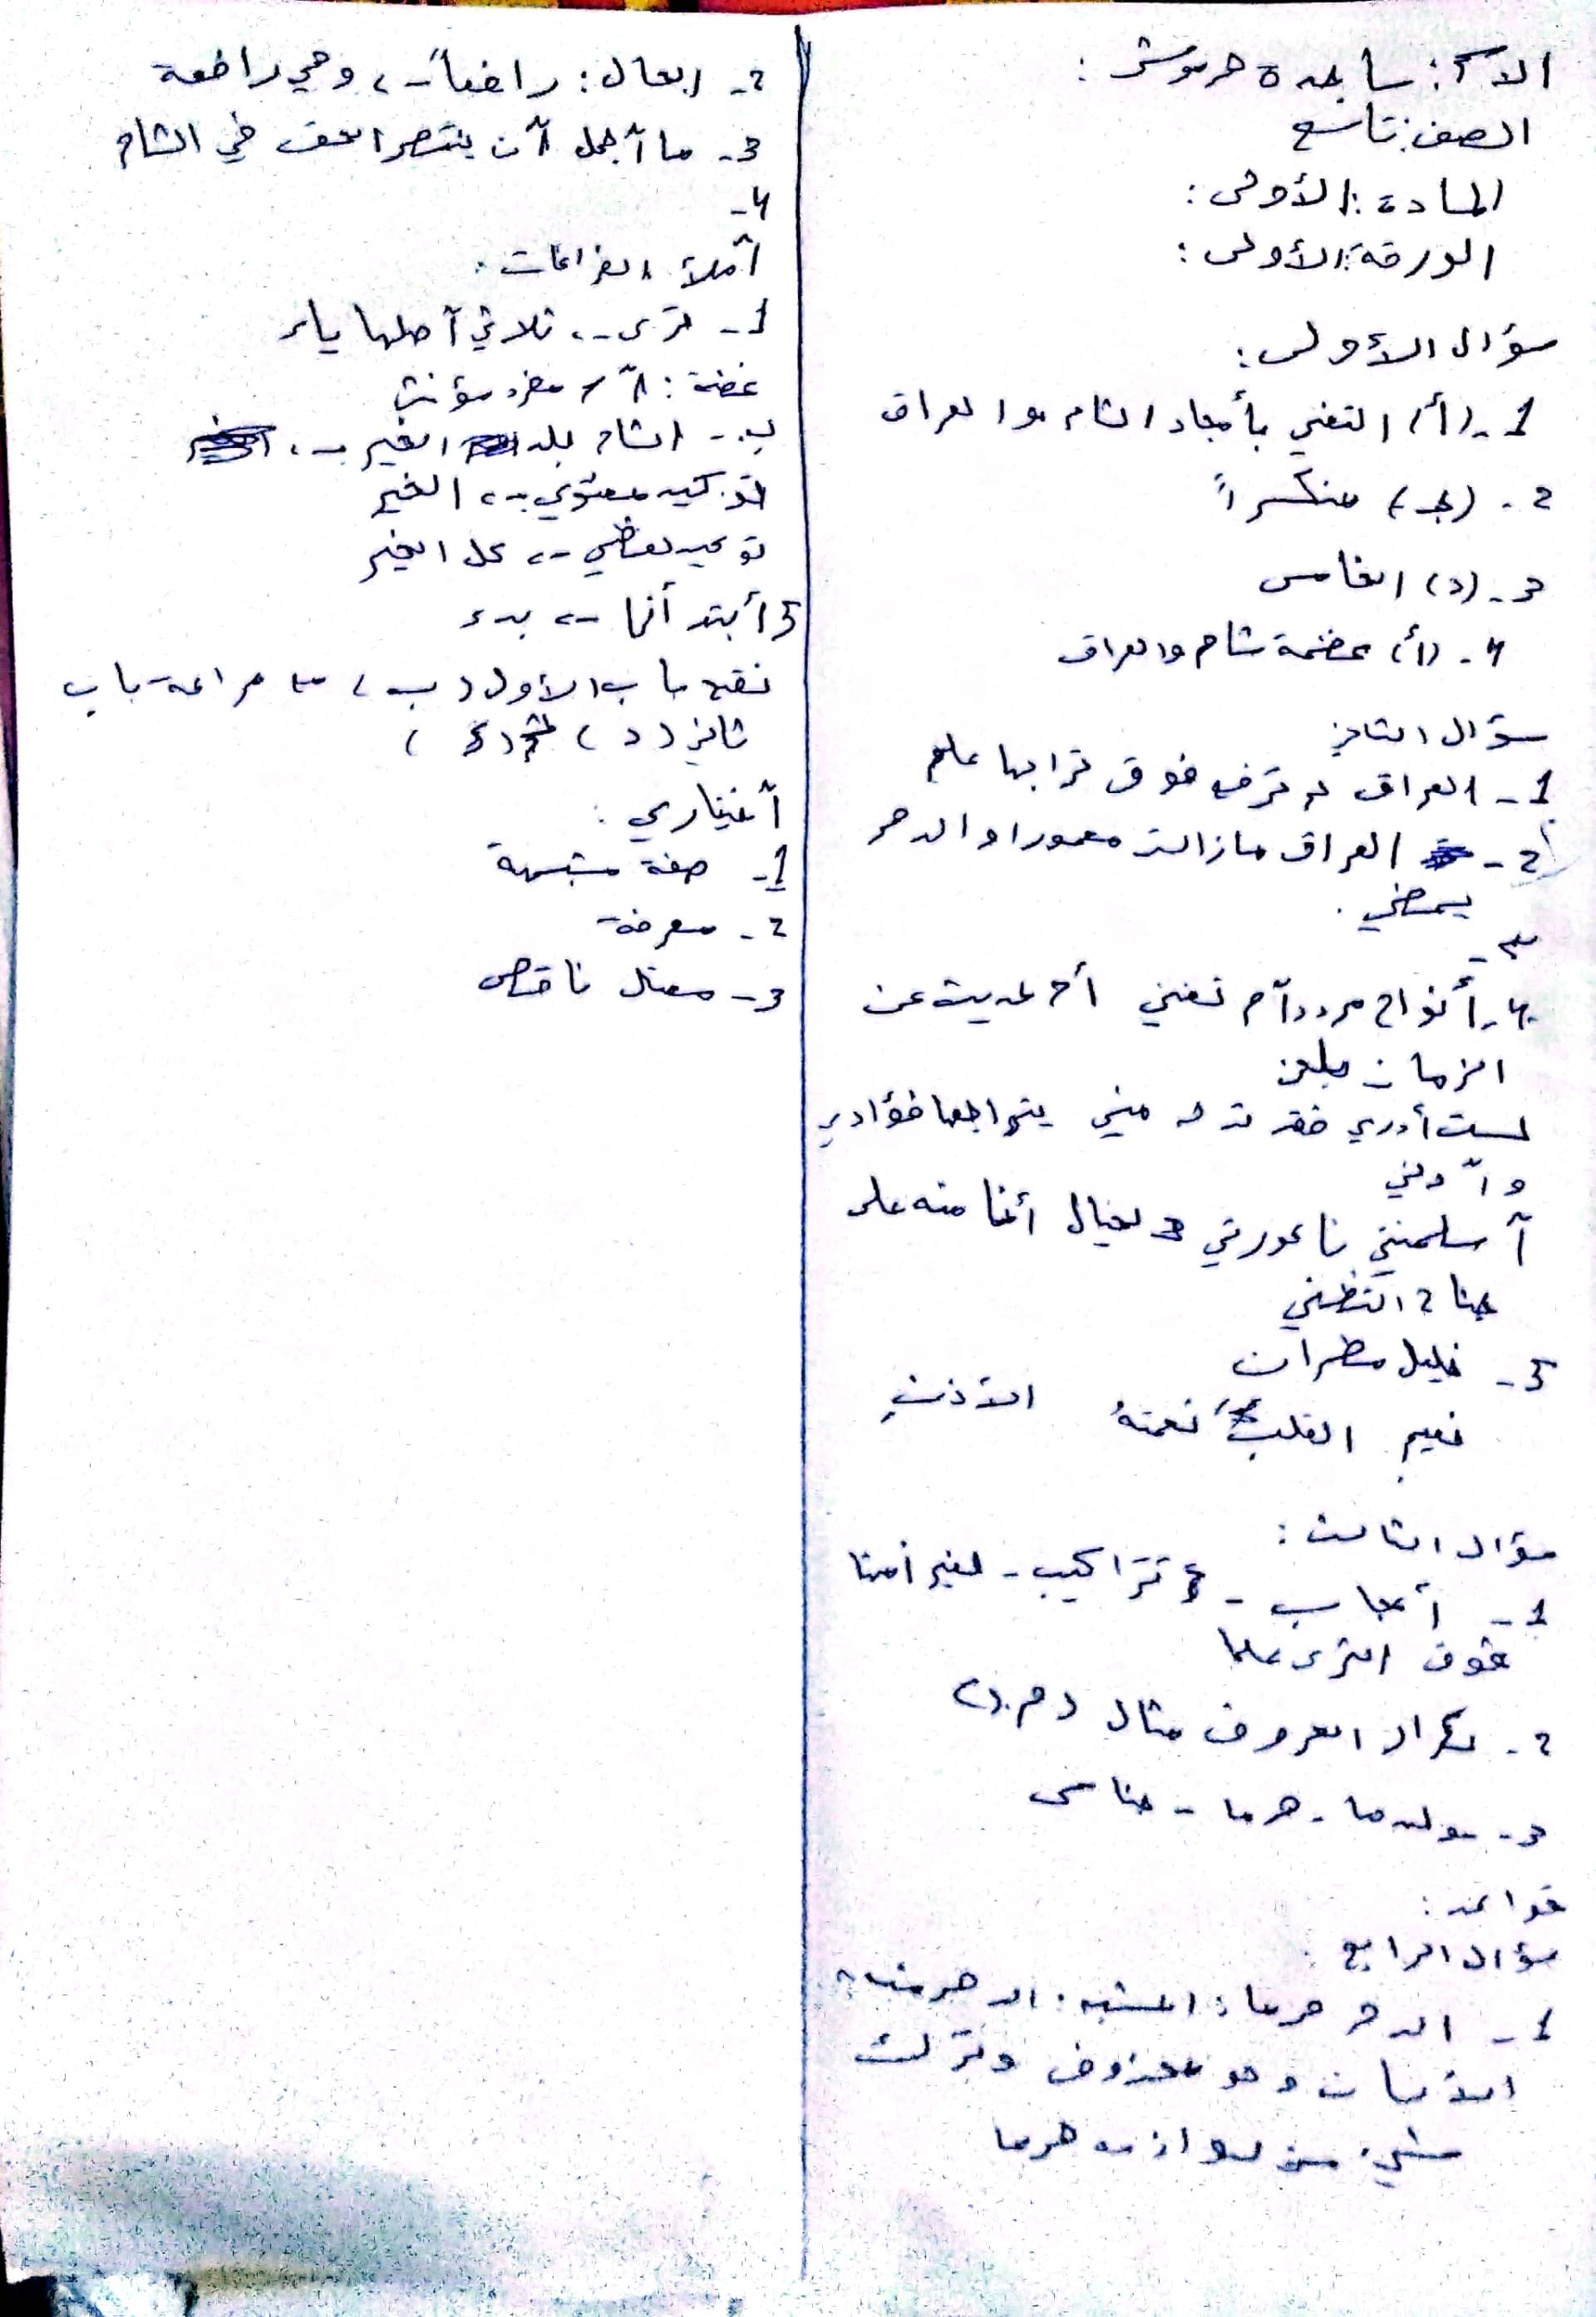 الاسم: ساجدة حرموش:
الصف: تاسع
المادة: الأولى:
الورقة: الأولى:
سؤال الأولى:
1- (أ) التغني بأمجاد الشام والعراق
2- (جـ) منكسراً
3- (د) الخامس
4- (أ) عضمة شام والعراق
سؤال الثاني
1- العراق لم ترفع فوق ترابها علم
2- العراق مازالت معمورا والدهر
يمضي.
3-
4- أنواح مردد أم تغني أم حديث عن
الزمان
لست أدري فقد
يتواجعها فؤادي
أسلمتني ناعورتي لخيال أنا منه على
جناح التظني
5- خليل مطران
نعيم القلب نعمتهُ الأذنِ
سؤال الثالث:
1- أعجاب - تراكيب - لغير أمتنا
فوق الثرى علما
2- تكرار الحروف مثال (م.د)
3- ولدما - هرما -
قواعد:
سؤال الرابع:
1- الدهر هرما: المشبه: الدهر مشبه
الأنسان وهو محذوف وترك
شيء من لوازمه هرما
2- الحال: رافعاً -، وهي رافعة
3- ما أجمل أن ينتصر الحق في الشام
4-
أملأ الفراغات.
1- ثرى -، ثلاثي أصلها ياء
مفرد مؤنث
ب- الشام بلد الخير -،
توكيد معنوي -، الخير
توكيد لفظي -، كل الخير
5 أبتد أنا -، بدء
نفتح باب الأول (ب)، باب
ثاني (د)
أختياري:
1- صفة مشبهة
2- معرفة
3- معتل ناقص